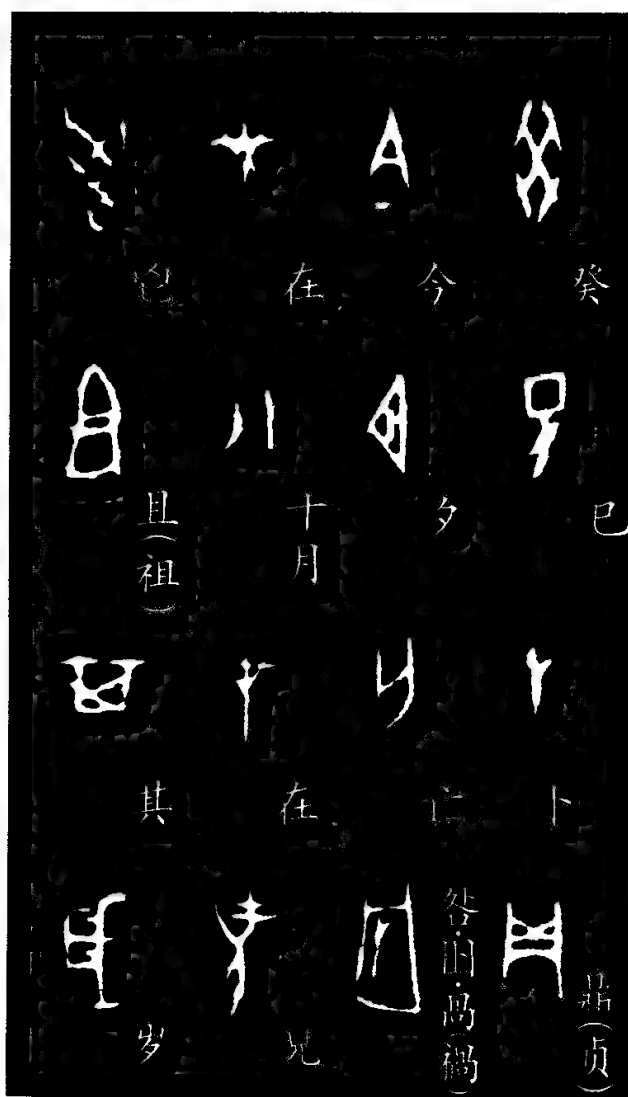 癸巳卜鼎(贞)
今夕亡咎·𡆥·禍(禍)
在十月在
且(祖)其岁